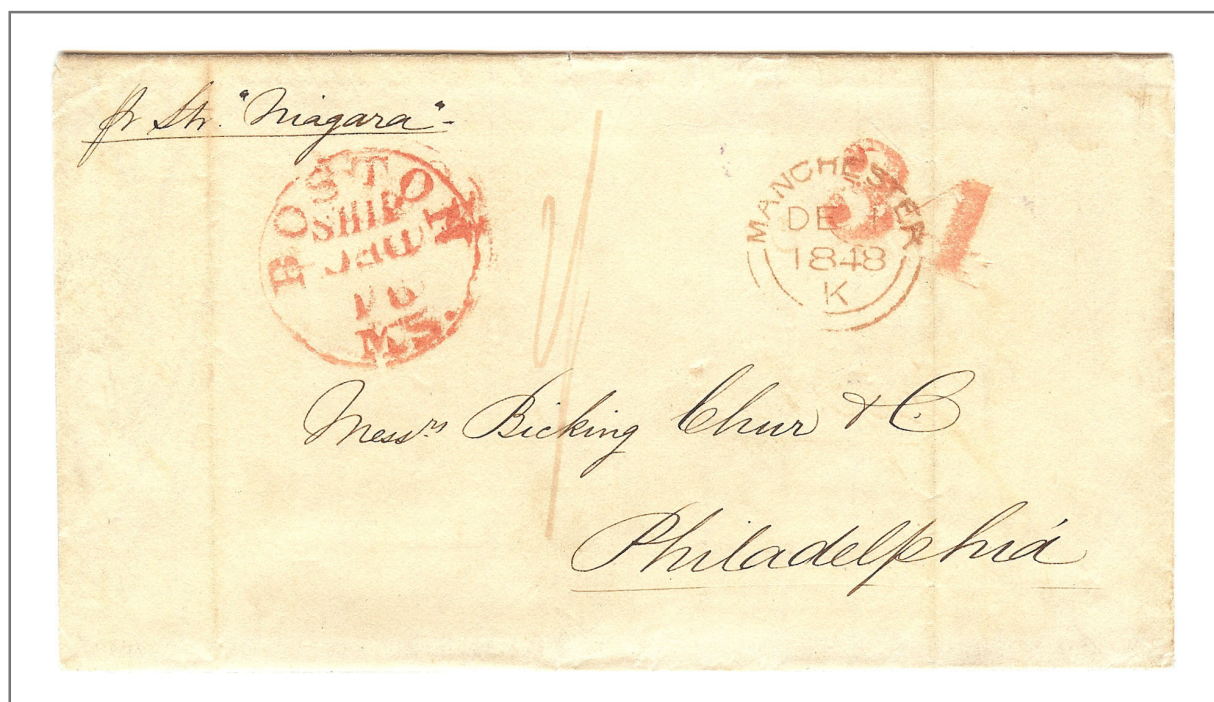 pr Str. "Niagara"
BOSTON
SHIP
16
MS.
MANCHESTER
DE
1848
K
Messrs Bicking Chur & C
Philadelphia